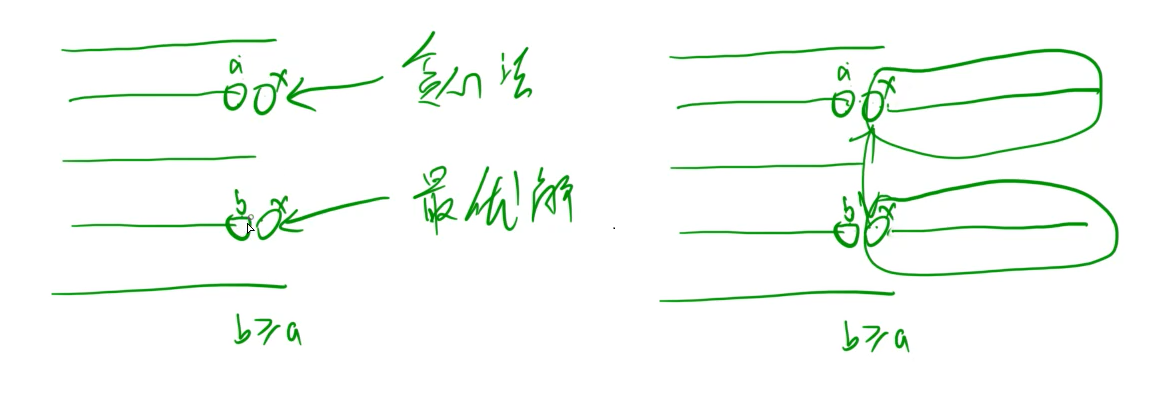 a x 贪心法
b x 最优解
b≥a
a x
b x
b≥a